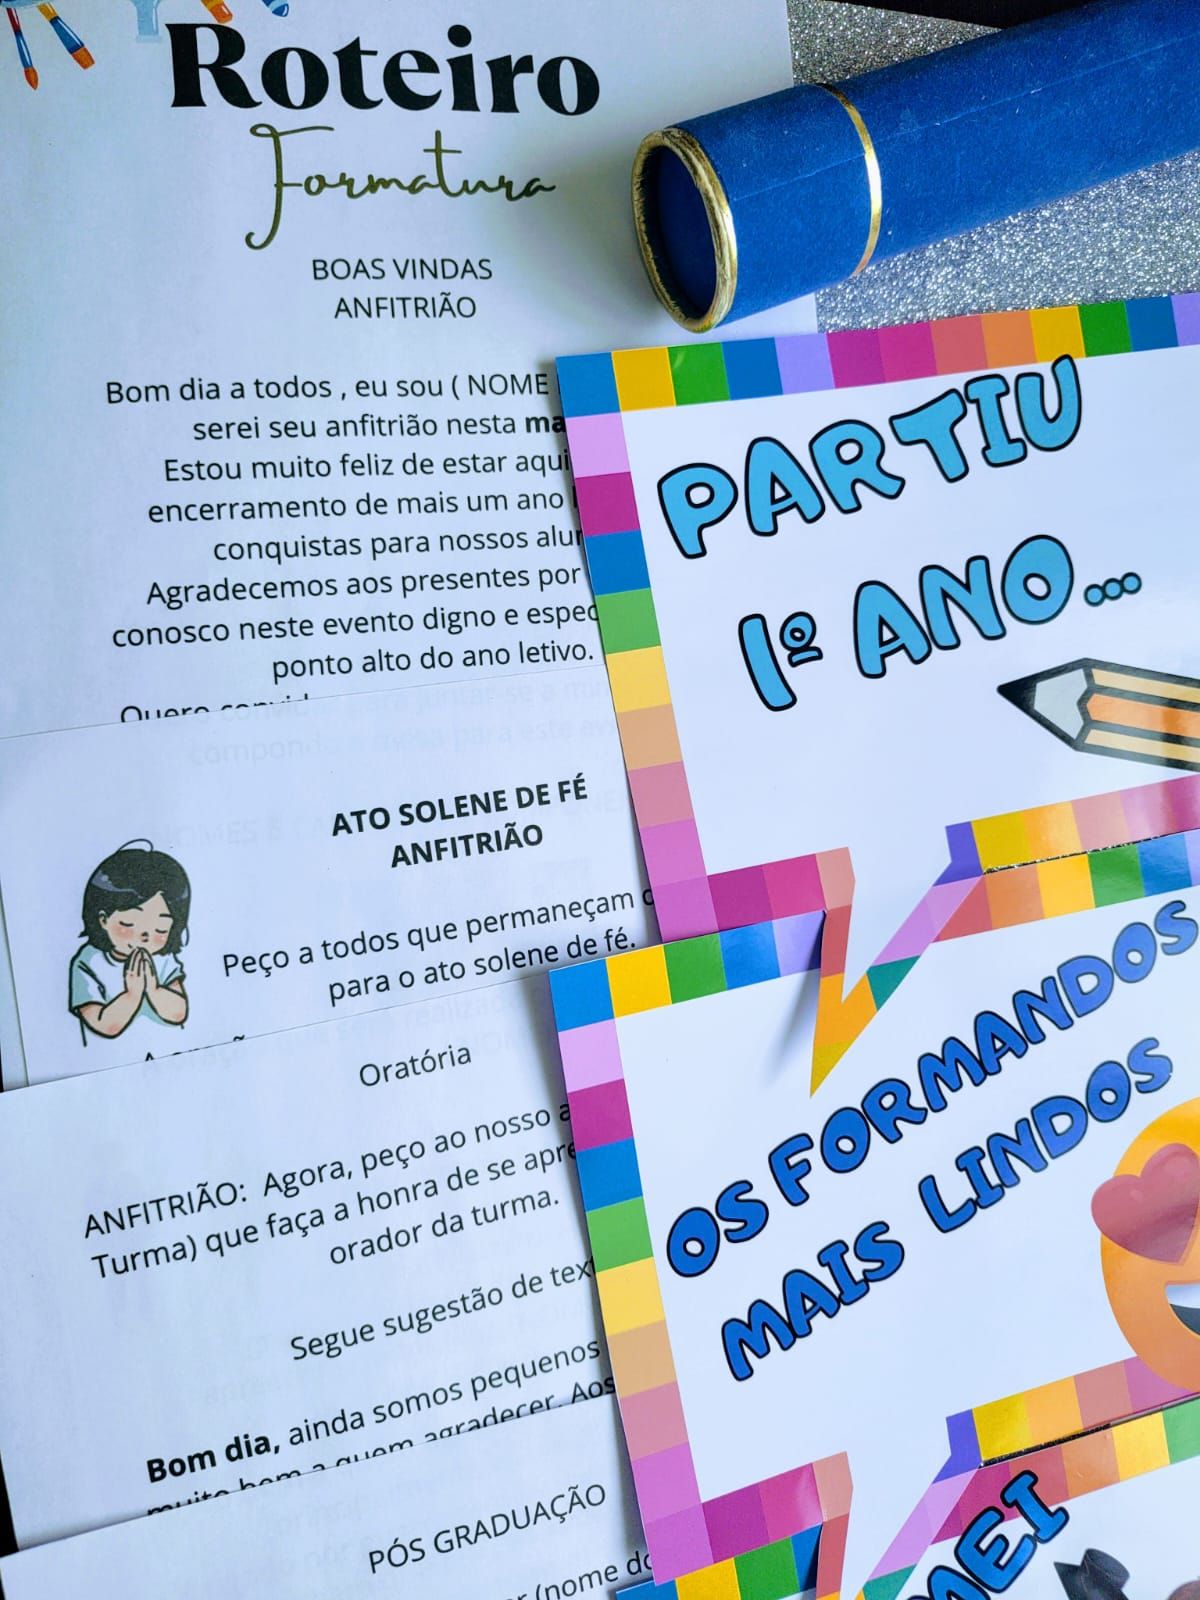 Roteiro
Formatura
BOAS VINDAS
ANFITRIÃO
Bom dia a todos , eu sou ( NOME
serei seu anfitrião nesta
Estou muito feliz de estar aqui
encerramento de mais um ano
conquistas para nossos
Agradecemos aos presentes por
conosco neste evento digno e
ponto alto do ano letivo.
Quero
ATO SOLENE DE FÉ
ANFITRIÃO
Peço a todos que permaneçam
para o ato solene de fé.
Oratória
ANFITRIÃO: Agora, peço ao nosso
Turma) que faça a honra de se
orador da turma.
Segue sugestão de
Bom dia, ainda somos pequenos
muito bem a quem agradecer. Aos
PÓS GRADUAÇÃO
(nome
PARTIU
1º ANO...
OS FORMANDOS
MAIS LINDOS